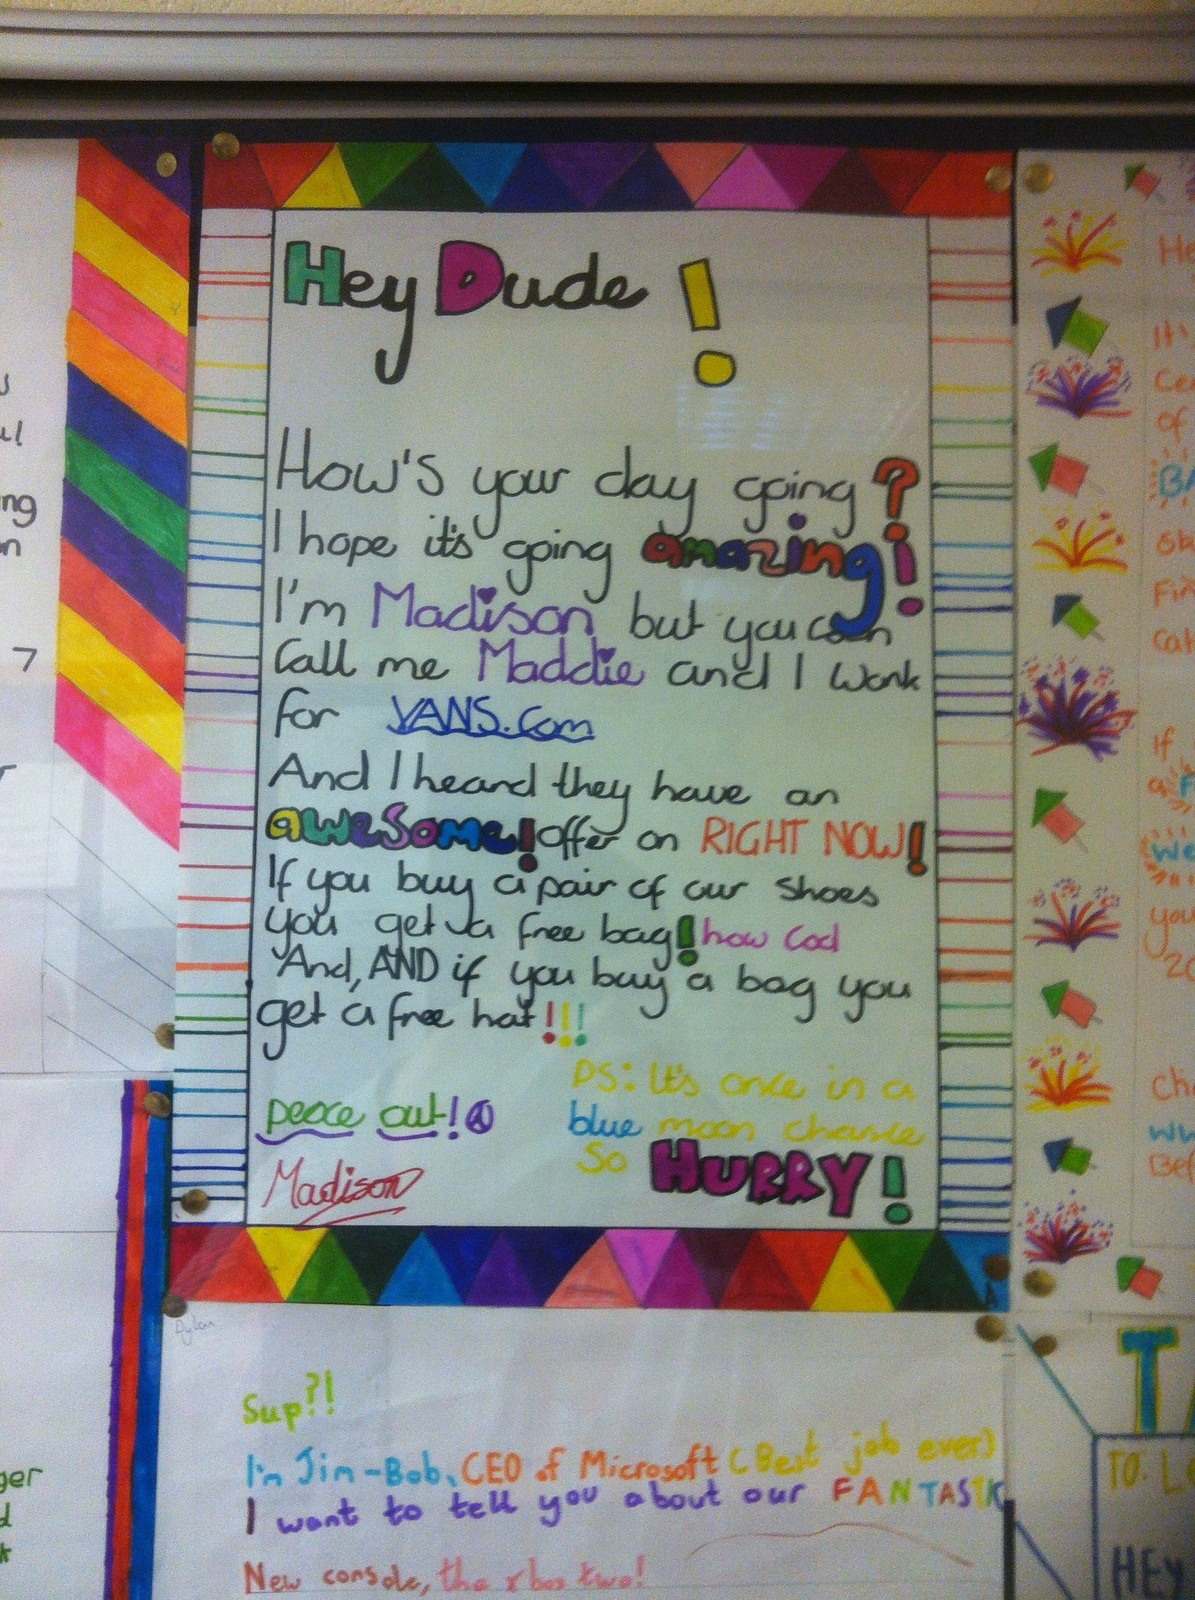 Hey Dude!
How's your day going?
I hope it's going amazing!
I'm Madison but you can
Call me Maddie and I work
for VANS.com
And I heard they have an
awesome! offer on RIGHT NOW!
If you buy a pair of our shoes
you get a free bag! how cool
And, AND if you buy a bag you
get a free hat!!!
PS: It's once in a
blue moon chance
so HURRY!
peace out!
Madison
Dylan
Sup?!
I'm Jim-Bob, CEO of Microsoft (Best job ever)
I want to tell you about our FANTASTIC
New console, the xbox two!
7
ng
ger
He
It's
Ce
of
BA
Fin
If
a
we
you
20
Ch
Bef
TO: L
HEY